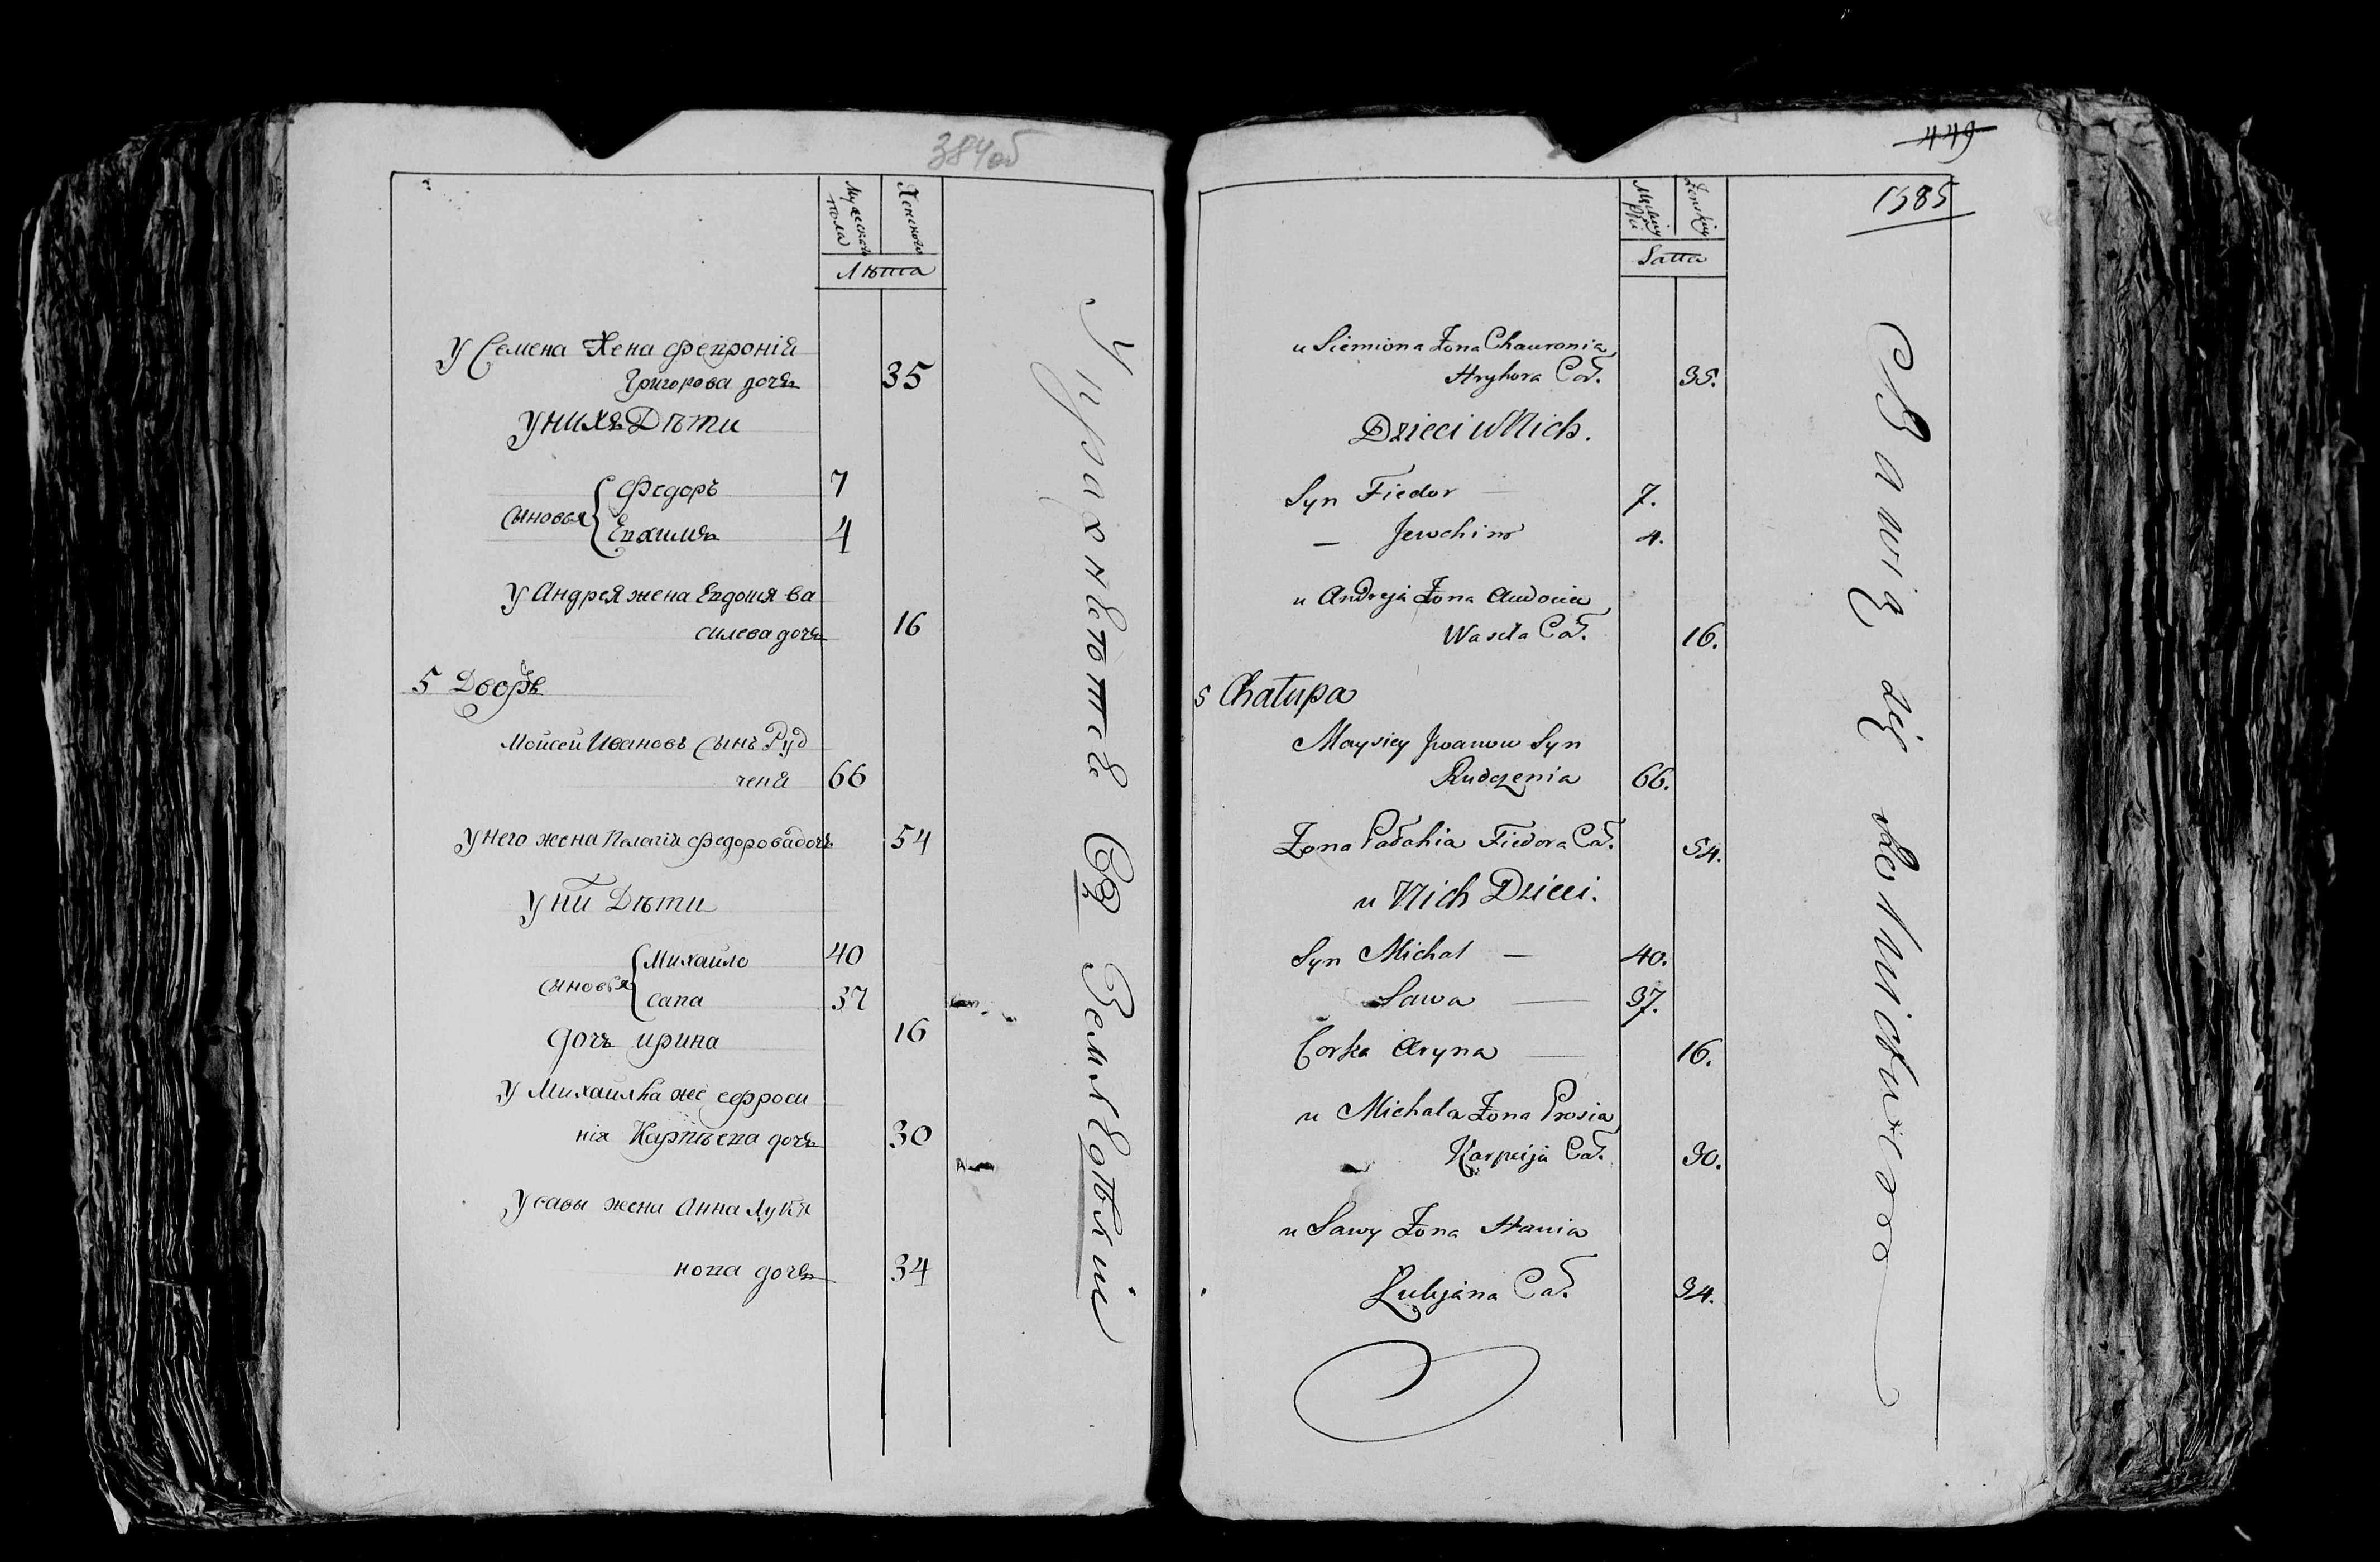 384об
Мужеска пола
Женского
Лѣта
У Семена Жена Февронiя
Григорова дочь
35
У нихъ Дѣти
Сыновья
Федоръ 7
Евхимъ 4
У Андрея жена Евдокия Ва
силева дочь 16
5 Дворъ
Мойсей Ивановъ Сынъ Руд
ченя 66
У него жена Пелагiя Федорова дочь 54
У них Дѣти
Сыновья
Михайло 40
Сава 37
Дочь Ирина 16
У Михайлы же Ефроси
нiя Карпѣева дочь 30
У Савы жена Анна Лукiя
нова дочь 34
449
1585
Męskiey Płci
Żenskiey
Latta
u Siemiona Żona Chauronia
Hryhora Cór. 35.
Dzieci u Nich.
Syn Fiedor — 7.
— Jewchim 4.
u Andreja Żona Audocia
Wasila Cór. 16.
5 Chałupa
Maysiey Jwanow Syn
Rudczenia 66.
Żona Pałahia Fiedora Cór. 54.
u Nich Dzieci.
Syn Michał — 40.
Sawa — 37.
Corka Aryna — 16.
u Michała Żona Prosia
Karpieja Cór. 30.
u Sawy Żona Hania
Łukjana Cór. 34.